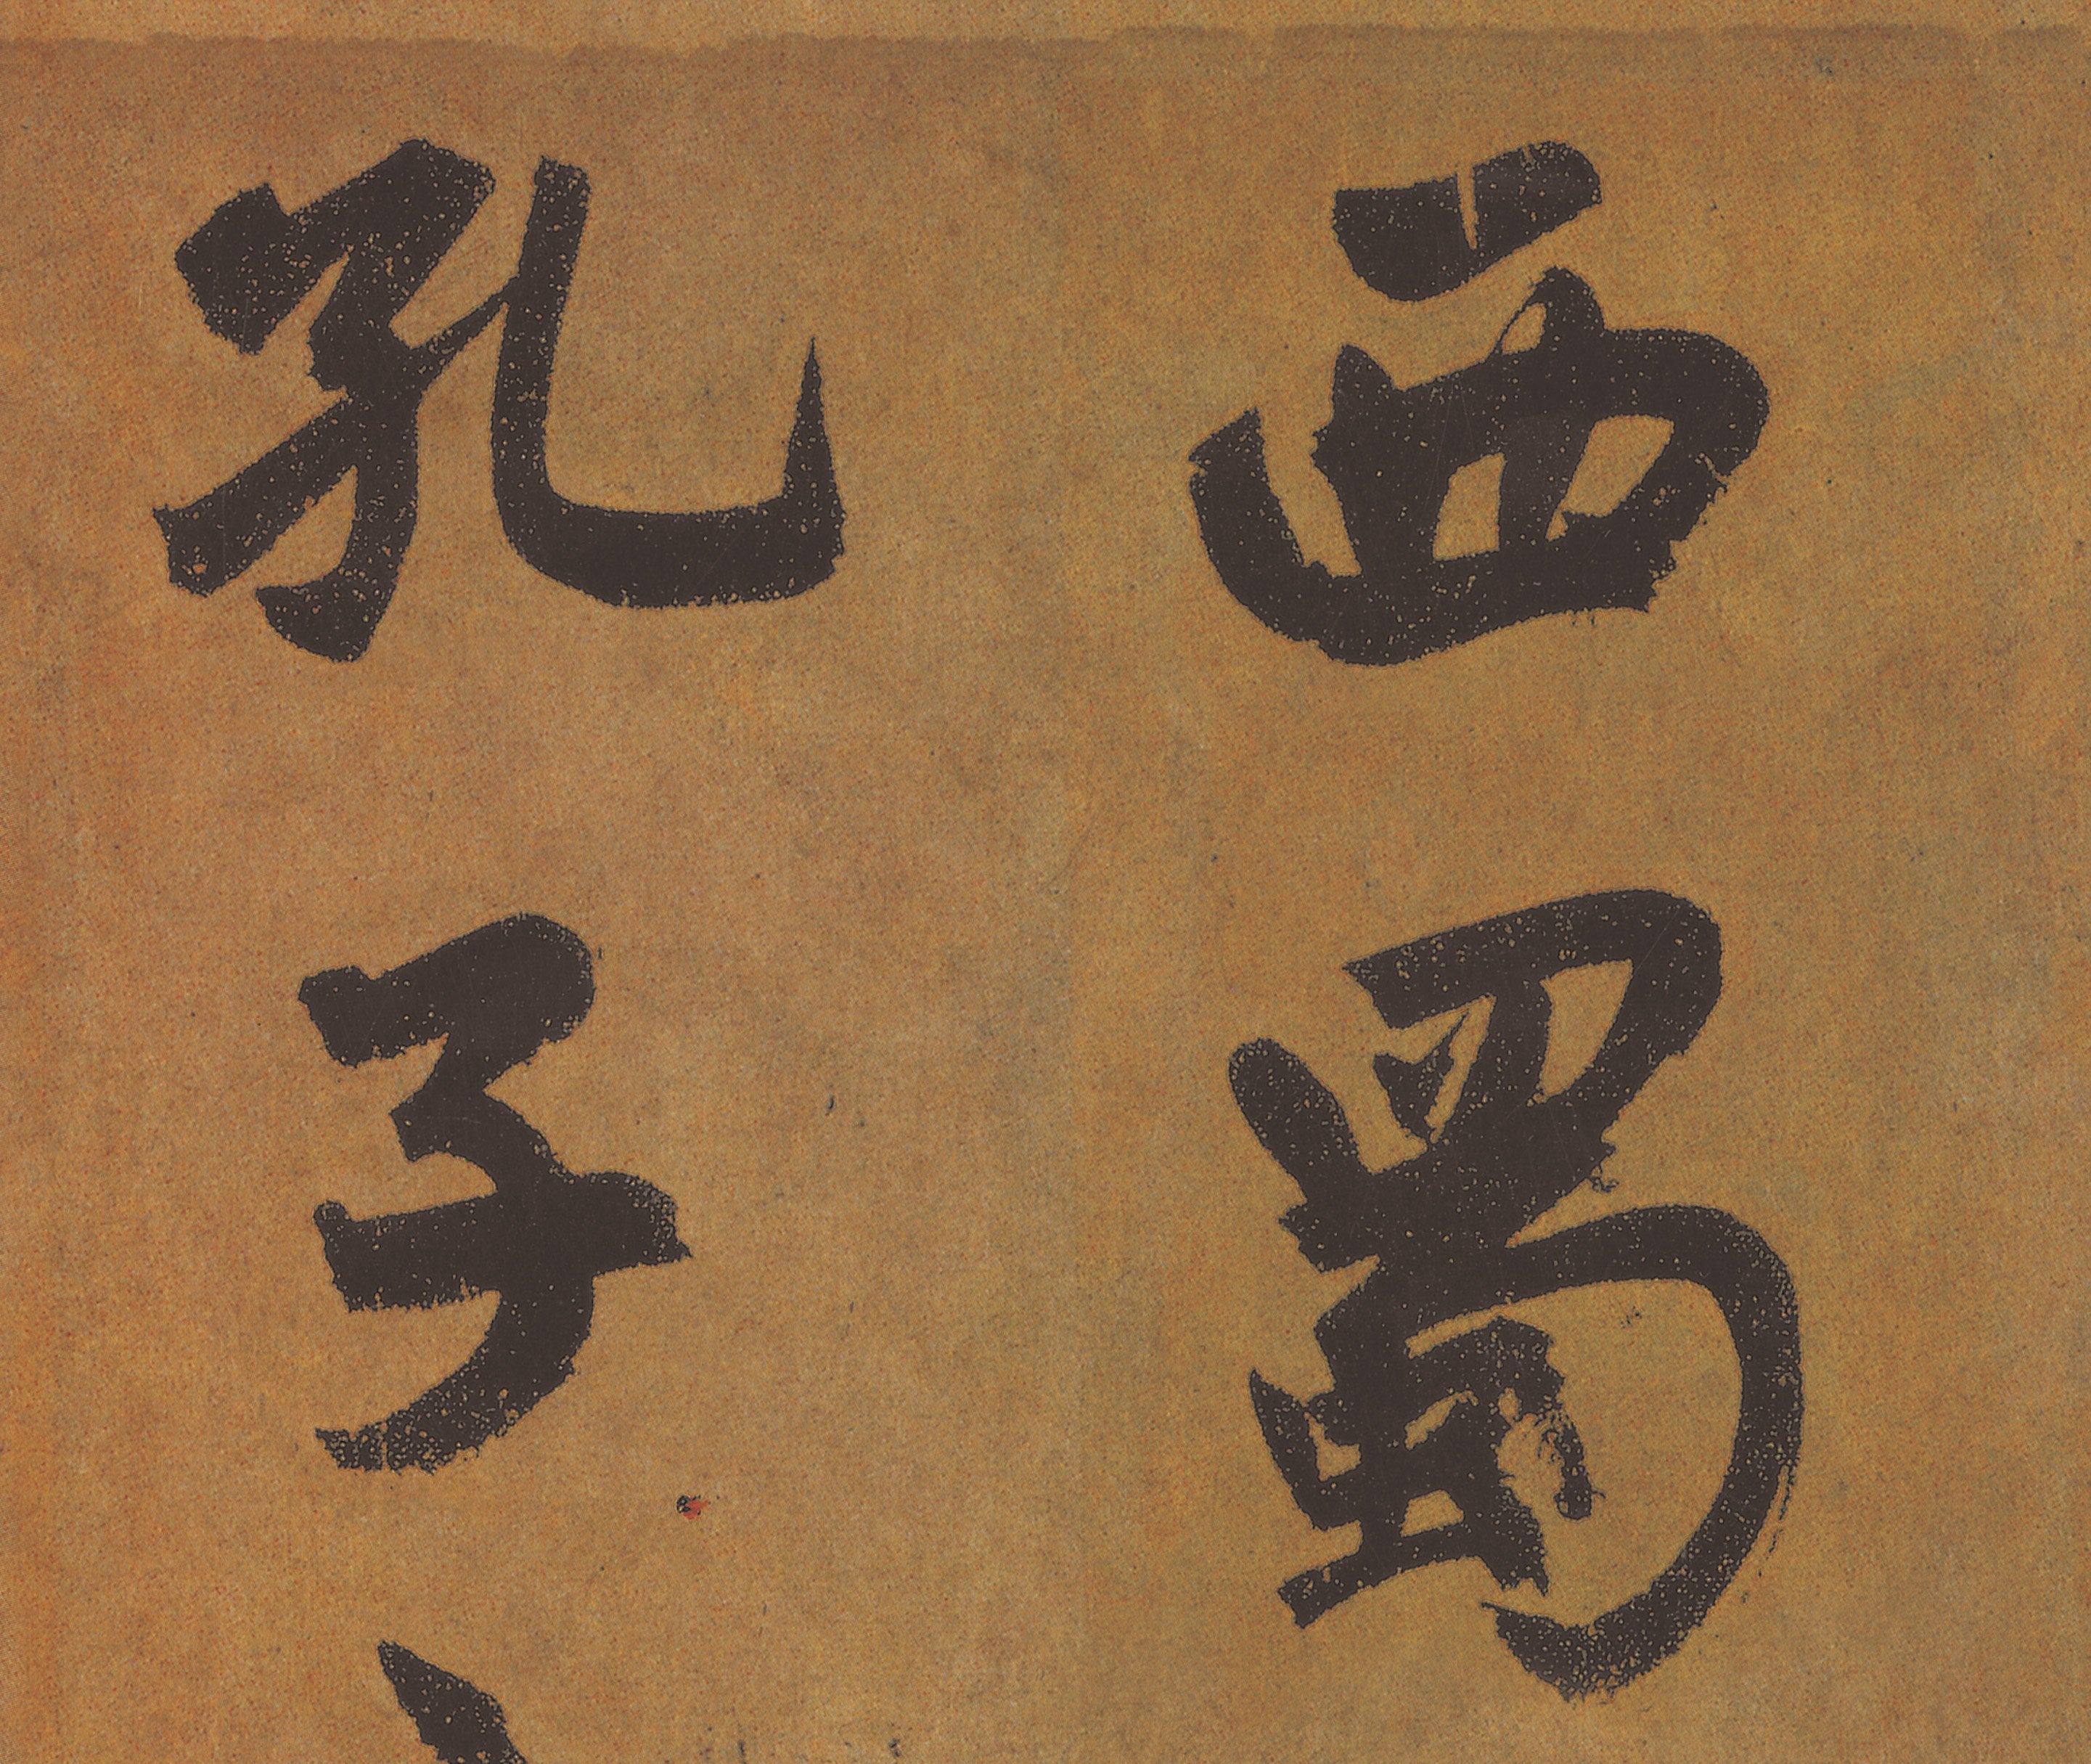 西蜀
孔子